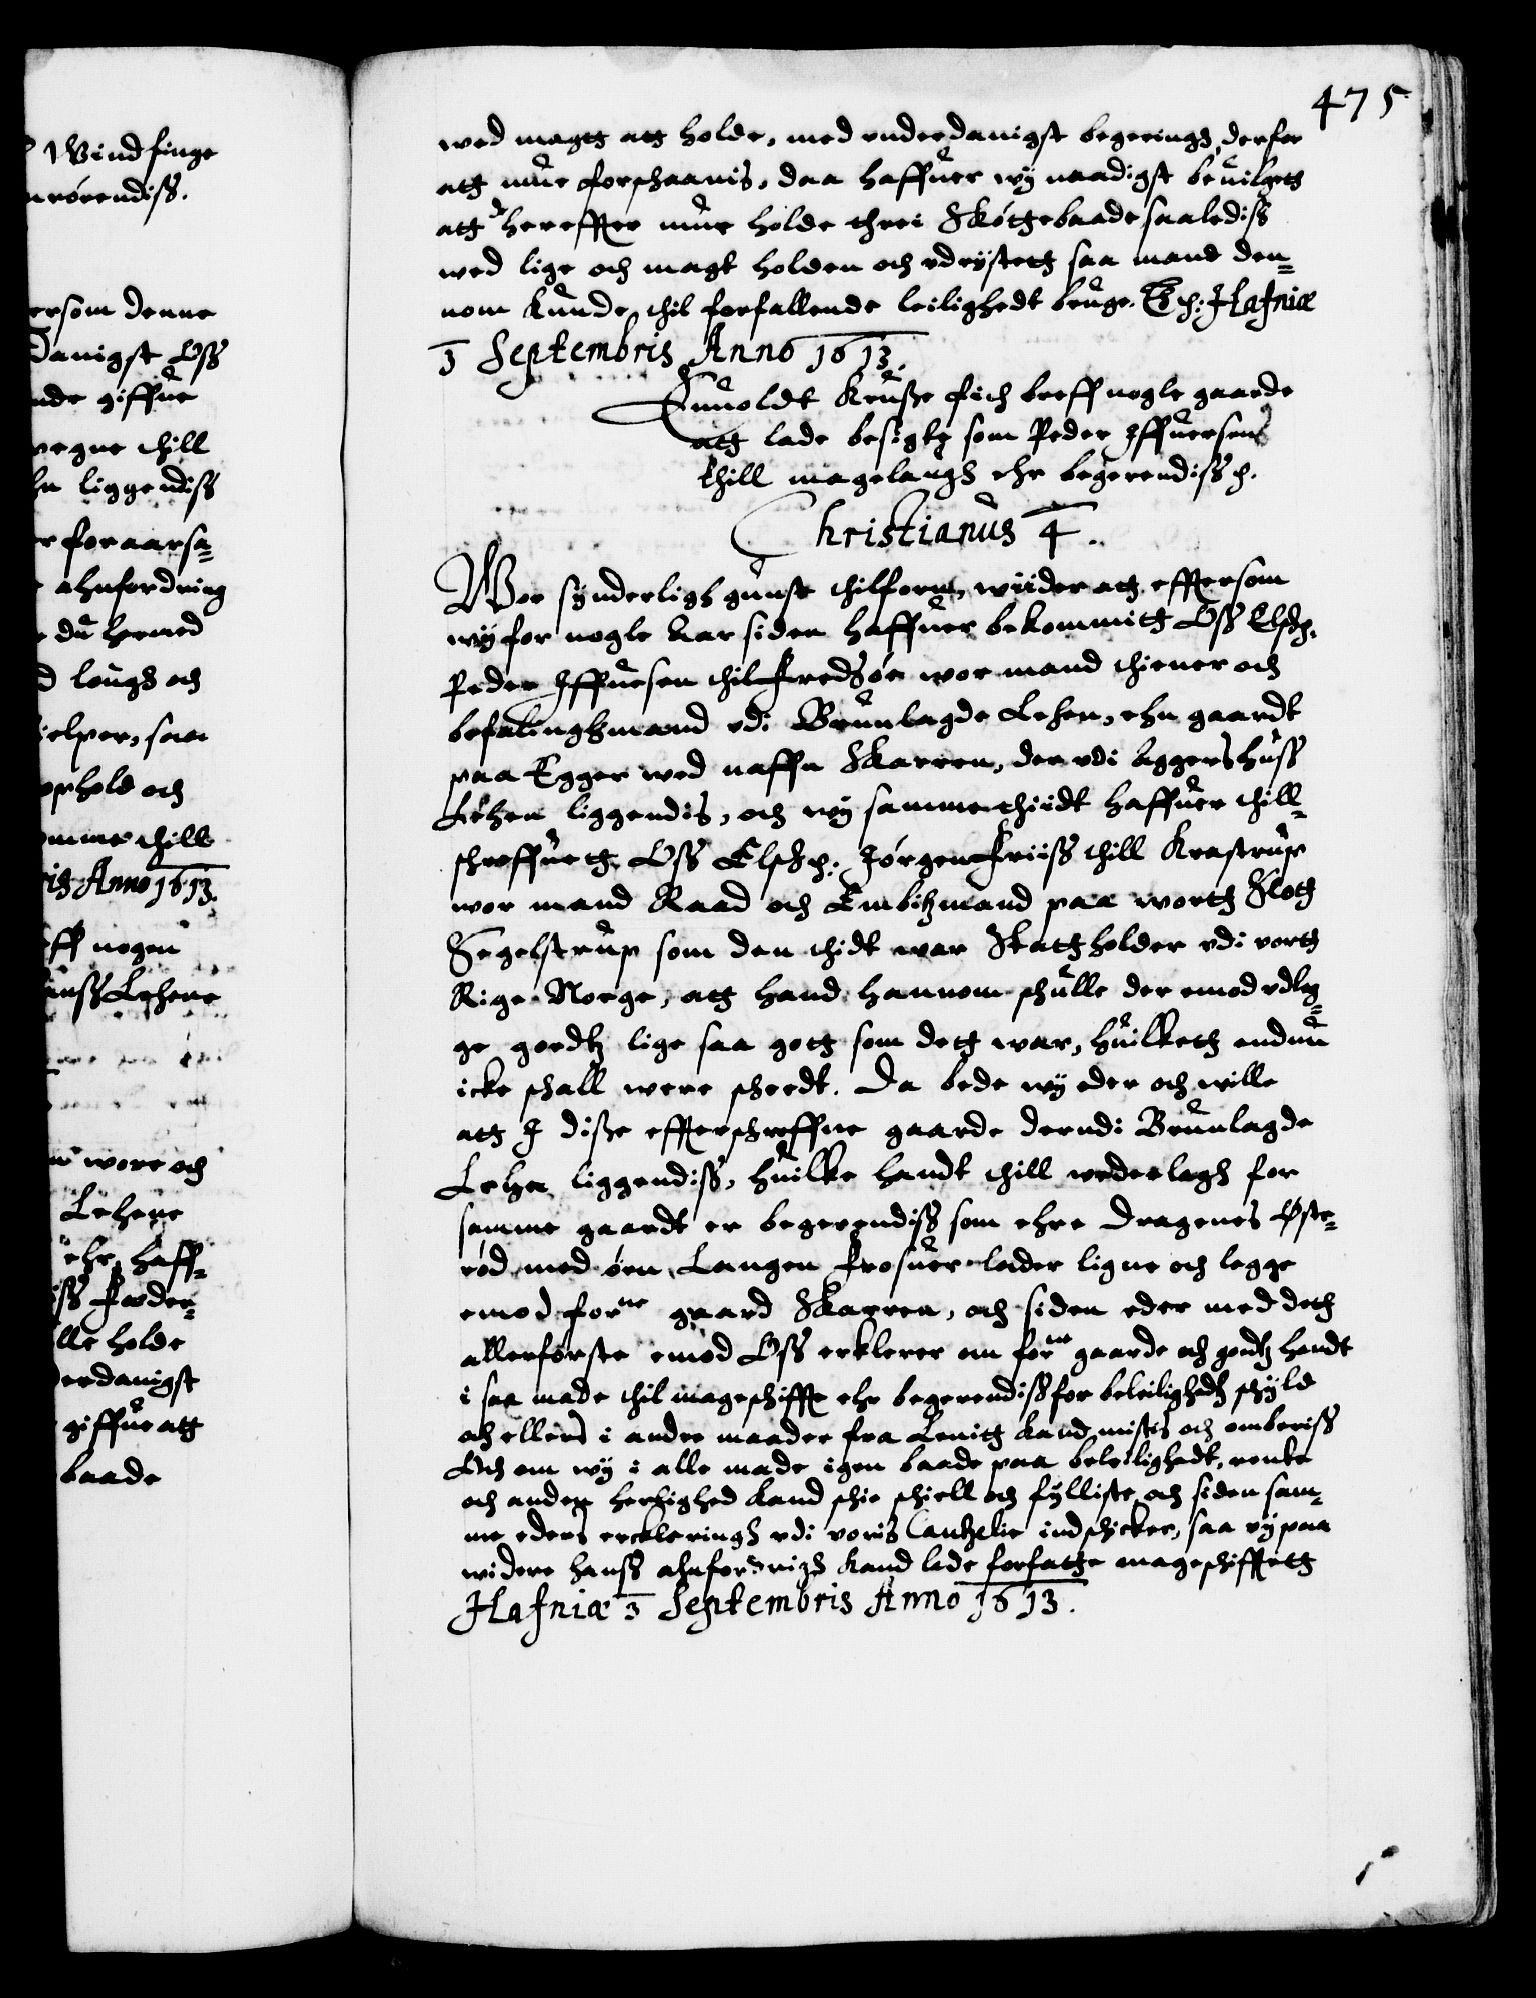 475
wed magtt att holde, med vnderdanigst begeringh, derfor
att mue forschaanis, daa haffuer wÿ naadigst beuilgett
att hereffter mue holde threi Skøttebaade saalediss
wed lige och magt holden och vdrÿstett saa mand den=
nom kunde, thil forfallende leilighedt bruge. Ex: Hafniæ
3 Septembris Anno 1613.
Enuoldt Kruse fich breff nogle gaarde
att lade besigte som Peder Iffuersens
thill magelaugh ehr begerendiss p.
Christianus 4.
Wor sÿnderligh gunst thilforn, wiider att effttersom
wÿ for nogle Aar siden haffuer bekommitt Oss Elsch.
Peder Iffuersen thil Fredsøe wor mand thiener och
befalinghmand vdi Brunlagde Lehen, ehn gaardt
paa Egger wed naffn Skarren, der vdi Aggershuss
Lehen liggendis, och wÿ samme thiidt haffuer thill=
schreffuett Oss Elsch: Jørgen Friiss thill Krastrup
wor mand Raad och Embitzmand paa wortt Slott
Segelstrup som den thidt war Statthholder vdi vortt
Rige Norge, att hand hannom schulle der emod vdleg=
ge goedtz lige saa gott som dett war, huilkett endnu
icke schall were scheedt. Da bede wÿ eder och wille
att I disse effterschreffne gaarde der vdi Brunlagde
Lehen liggendiss, huilke handt thill wederlagh for
samme gaardt er begerendiss som ehre Dragenes Øste=
rød med øen, Langen Frosuer lader ligne och legge
emod forne gaard Skarren, och siden eder med deth
allerførste emod Oss erklerer om forne gaarde och goedtz handt
i saa made thil mageschiffte ehr begerendiss for beleilighedtz schyld
och ellers i andre maader fra Lenitt kand mistis och ombæriss
Och om wÿ i alle made igen baade paa beleilighedt, rente
och anden herlighed kand schie schiell och fÿlliste, och siden sam=
me eders erckleringh vdi voris Cantzelie indschicker, saa vÿ paa
widere hanss ahnfordringh kand lade forfatthe mageschifftett
Hafniæ 3 Septembris Anno 1613.
Windfinge
rørendiss.
ersom denne
danigst Oss
nde giffue
vegne thill
liggendiss
foraarsa=
ahnfordring
du hermed
lough och
ielper, saa
ophold och
omme thill
Anno 1613.
nogen
Lehene
wore och
Lehene
ehr, haff=
Fader=
lle holde
erdanigst
giffue att
baade